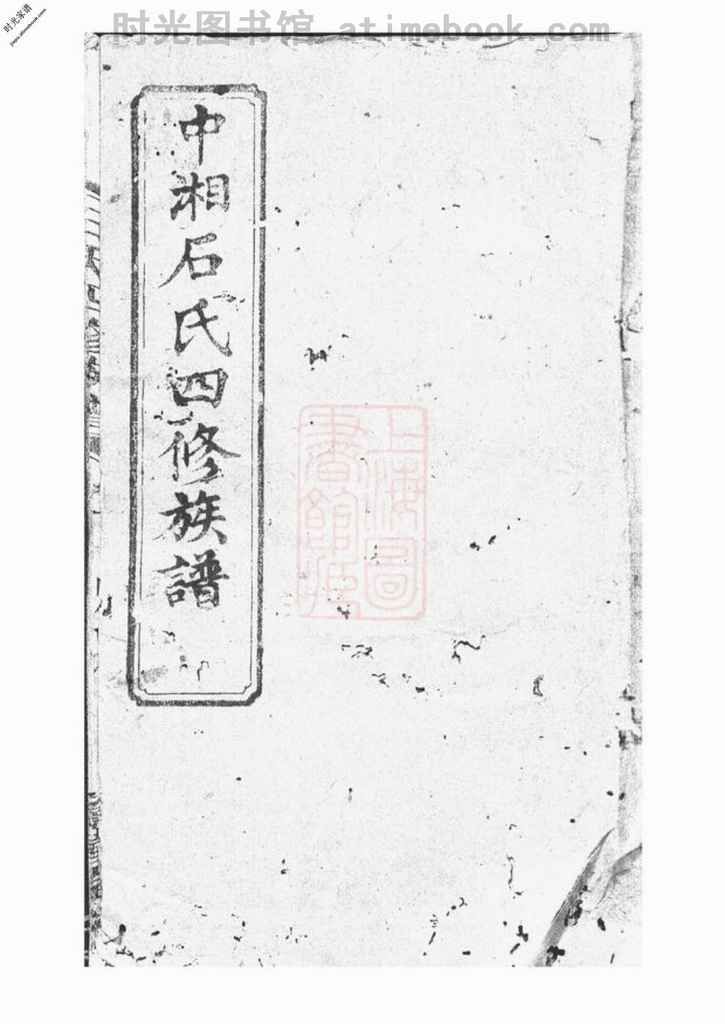 时光图书馆 atimebook.com
时光家谱
中湘石氏四修族譜
上海圖
書館藏